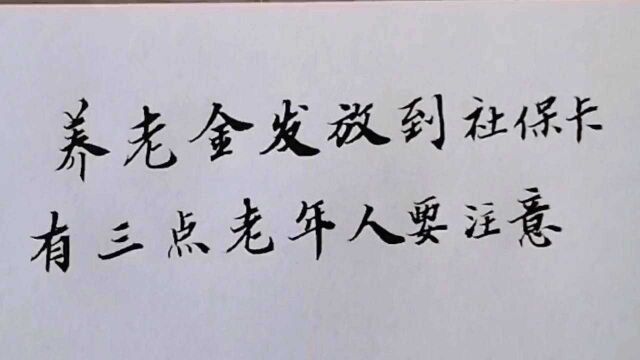 养老金发放到社保卡
有三点老年人要注意